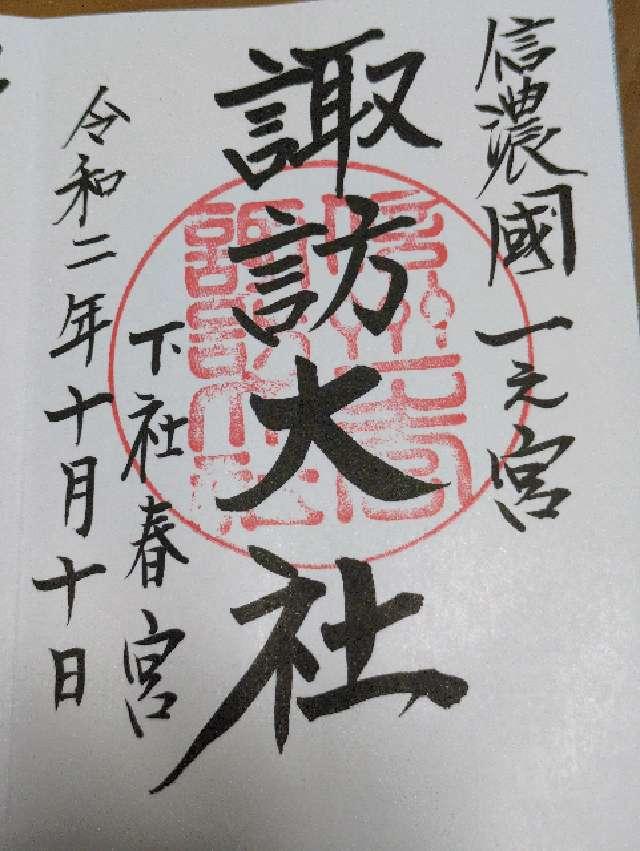 信濃國一之宮
諏訪大社
下社春宮
令和二年十月十日